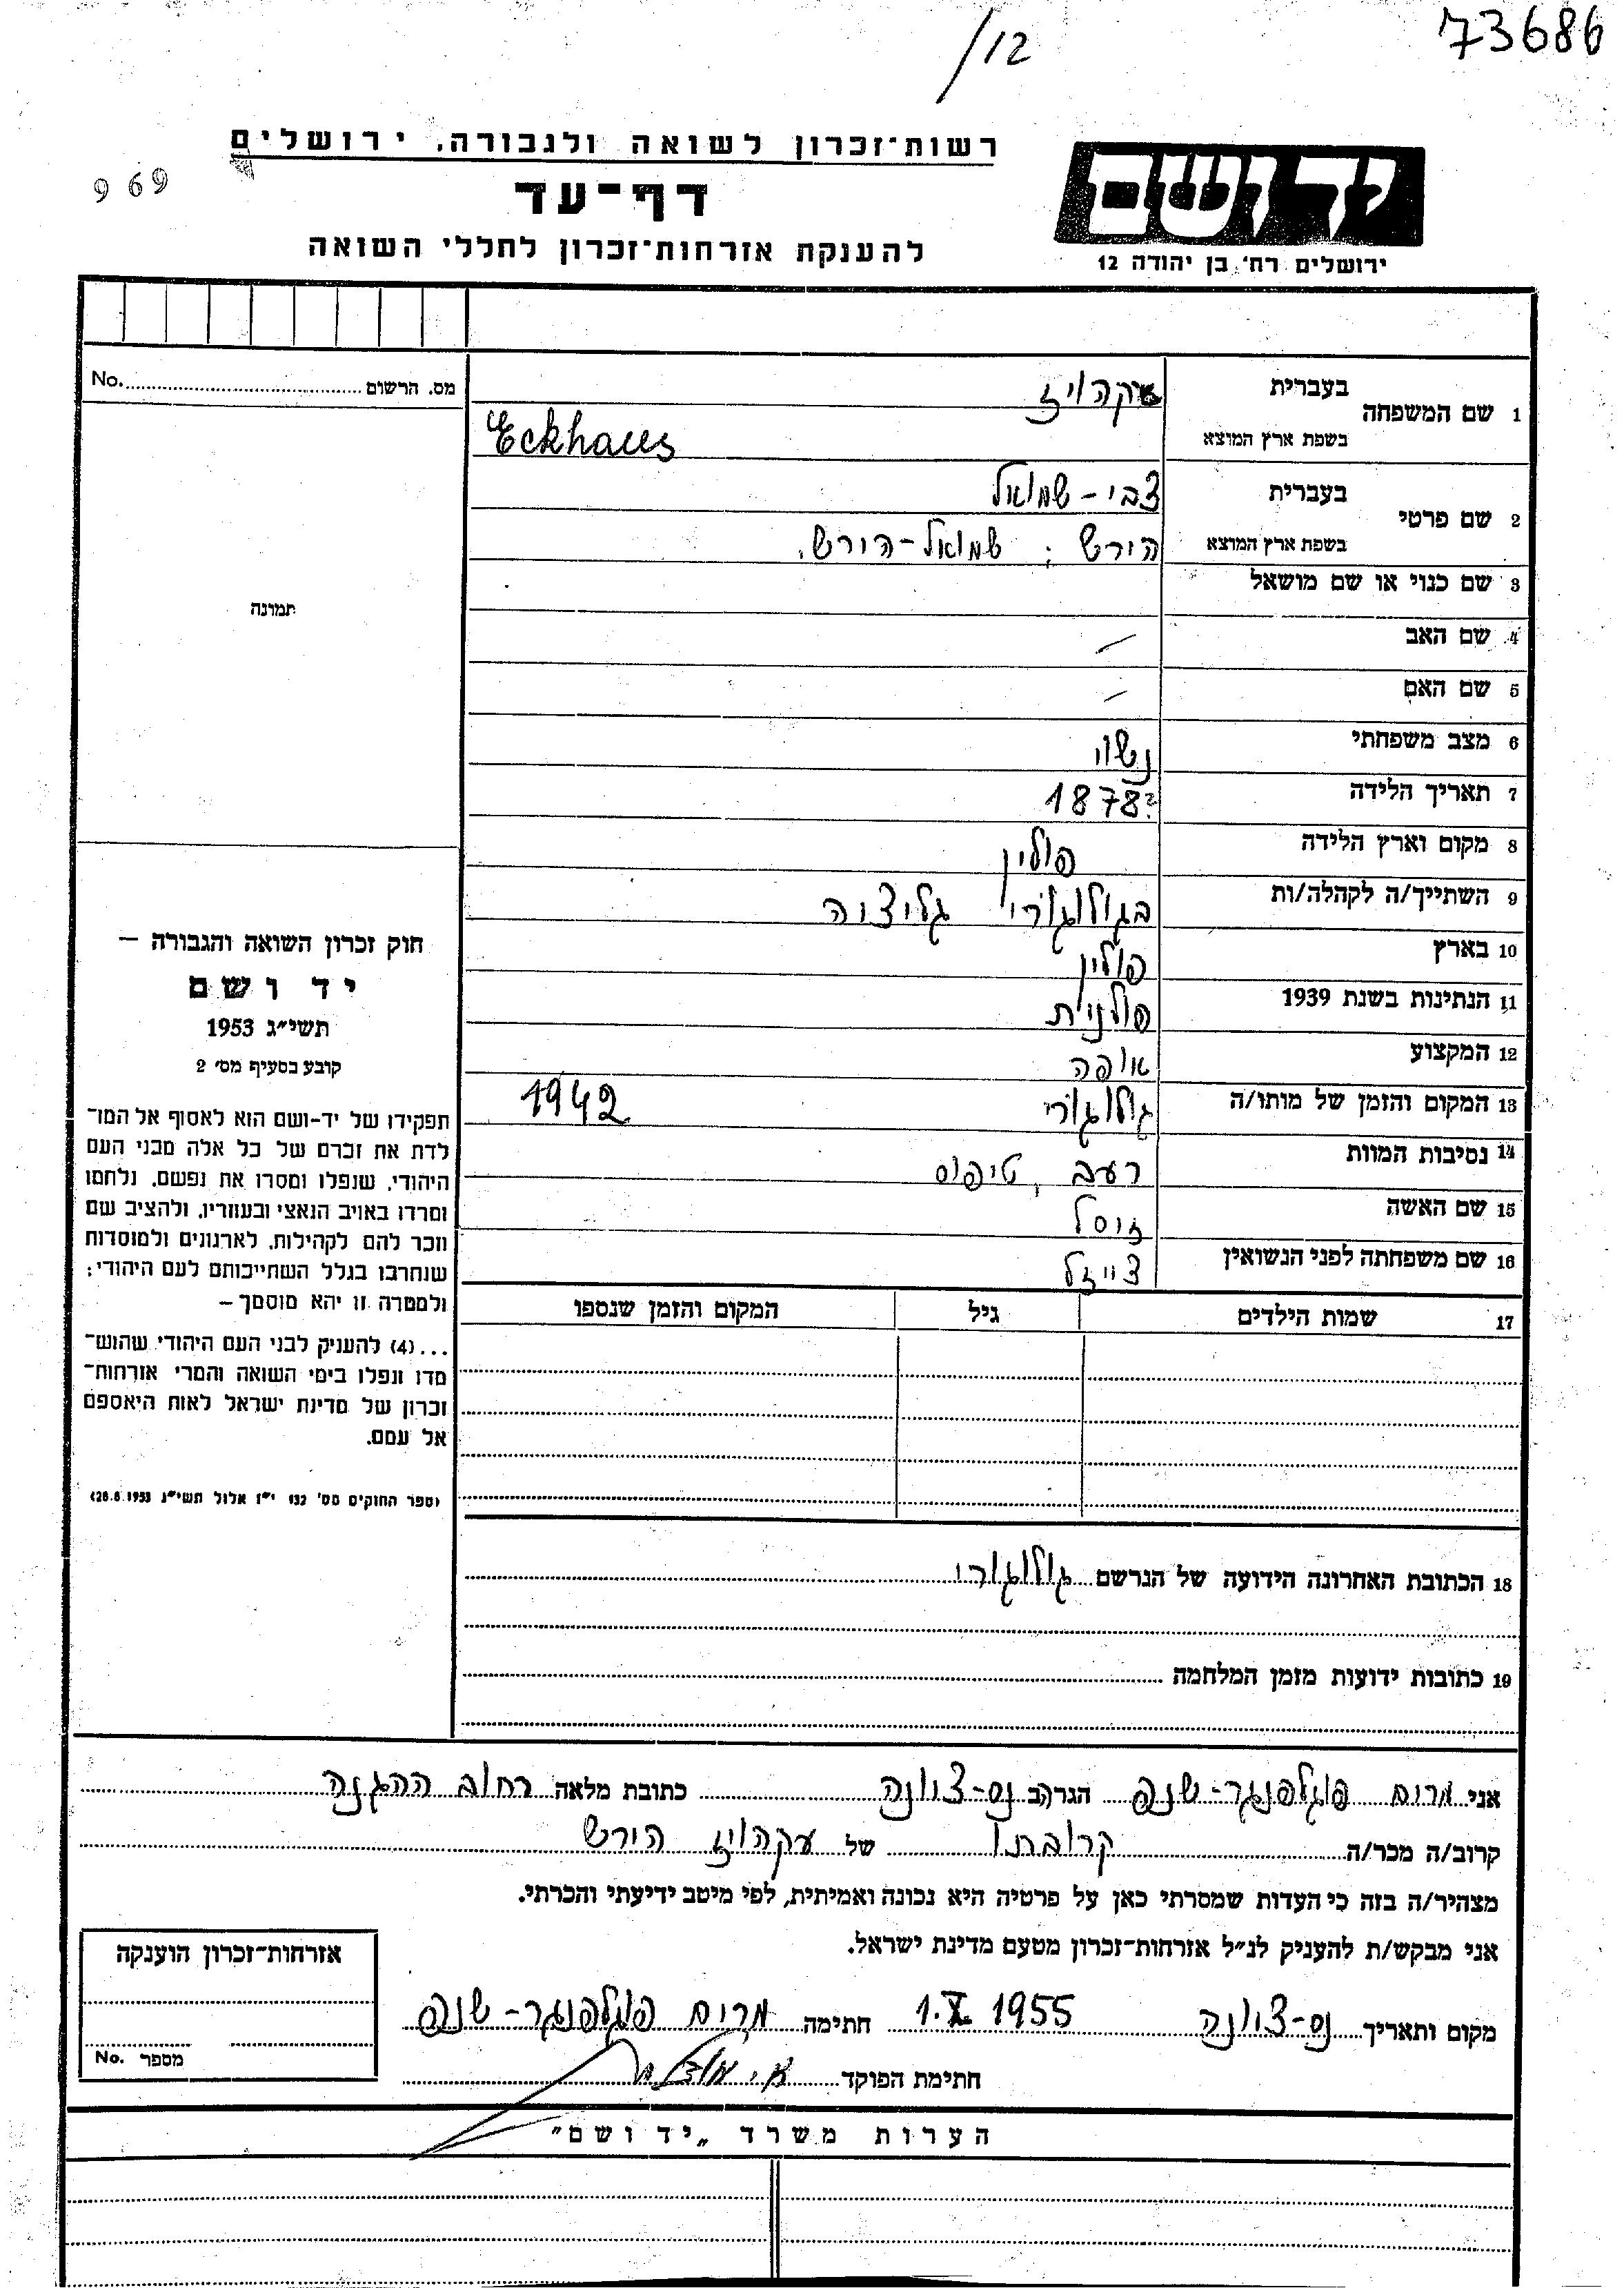 73686
/12
רשות־זכרון לשואה ולגבורה, ירושלים
969
ידושם
דף־עד
ירושלים רח׳ בן יהודה 12
להענקת אזרחות־זכרון לחללי השואה
מס. הרשום No.
1 שם המשפחה בעברית עקהויז
בשפת ארץ המוצא Eckhaus
2 שם פרטי בעברית צבי-שמואל
בשפת ארץ המוצא הירש ; שמואל-הירש.
3 שם כנוי או שם מושאל
תמונה
4 שם האב –
5 שם האם –
6 מצב משפחתי נשוי
7 תאריך הלידה 1878?
8 מקום וארץ הלידה פולין
9 השתייך/ה לקהלה/ות בגולוגורי גליציה
10 בארץ פולין
11 הנתינות בשנת 1939 פולנית
12 המקצוע אופה
13 המקום והזמן של מותו/ה גולוגורי 1942
14 נסיבות המוות רעב, טיפוס
15 שם האשה זוסל
16 שם משפחתה לפני הנשואין צייזל
17 שמות הילדים גיל המקום והזמן שנספו
חוק זכרון השואה והגבורה –
יד ושם
תשי״ג 1953
קובע בסעיף מס׳ 2
תפקידו של יד-ושם הוא לאסוף אל המו־
לדת את זכרם של כל אלה מבני העם
היהודי, שנפלו ומסרו את נפשם, נלחמו
ומרדו באויב הנאצי ובעוזריו, ולהציב שם
וזכר להם לקהילות, לארגונים ולמוסדות
שנחרבו בגלל השתייכותם לעם היהודי;
ולמטרה זו יהא מוסמך –
...(4) להעניק לבני העם היהודי שהוש־
מדו ונפלו בימי השואה והמרי אזרחות־
זכרון של מדינת ישראל לאות היאספם
אל עמם.
(ספר החוקים מס׳ 132 י״ז אלול תשי״ג 28.8.1953)
18 הכתובת האחרונה הידועה של הנרשם גולוגורי
19 כתובות ידועות מזמן המלחמה
אני מרים פוגלפנגר-שנפ הגר/ה ב נס-ציונה כתובת מלאה רחוב ההגנה
קרוב/ה מכר/ה קרובתו של עקהויז הירש
מצהיר/ה בזה כי העדות שמסרתי כאן על פרטיה היא נכונה ואמיתית, לפי מיטב ידיעתי והכרתי.
אני מבקש/ת להעניק לנ״ל אזרחות־זכרון מטעם מדינת ישראל.
אזרחות־זכרון הוענקה
מספר No.
מקום ותאריך נס-ציונה 1.X. 1955 חתימה מרים פוגלפנגר-שנפ
חתימת הפוקד
הערות משרד „יד ושם״